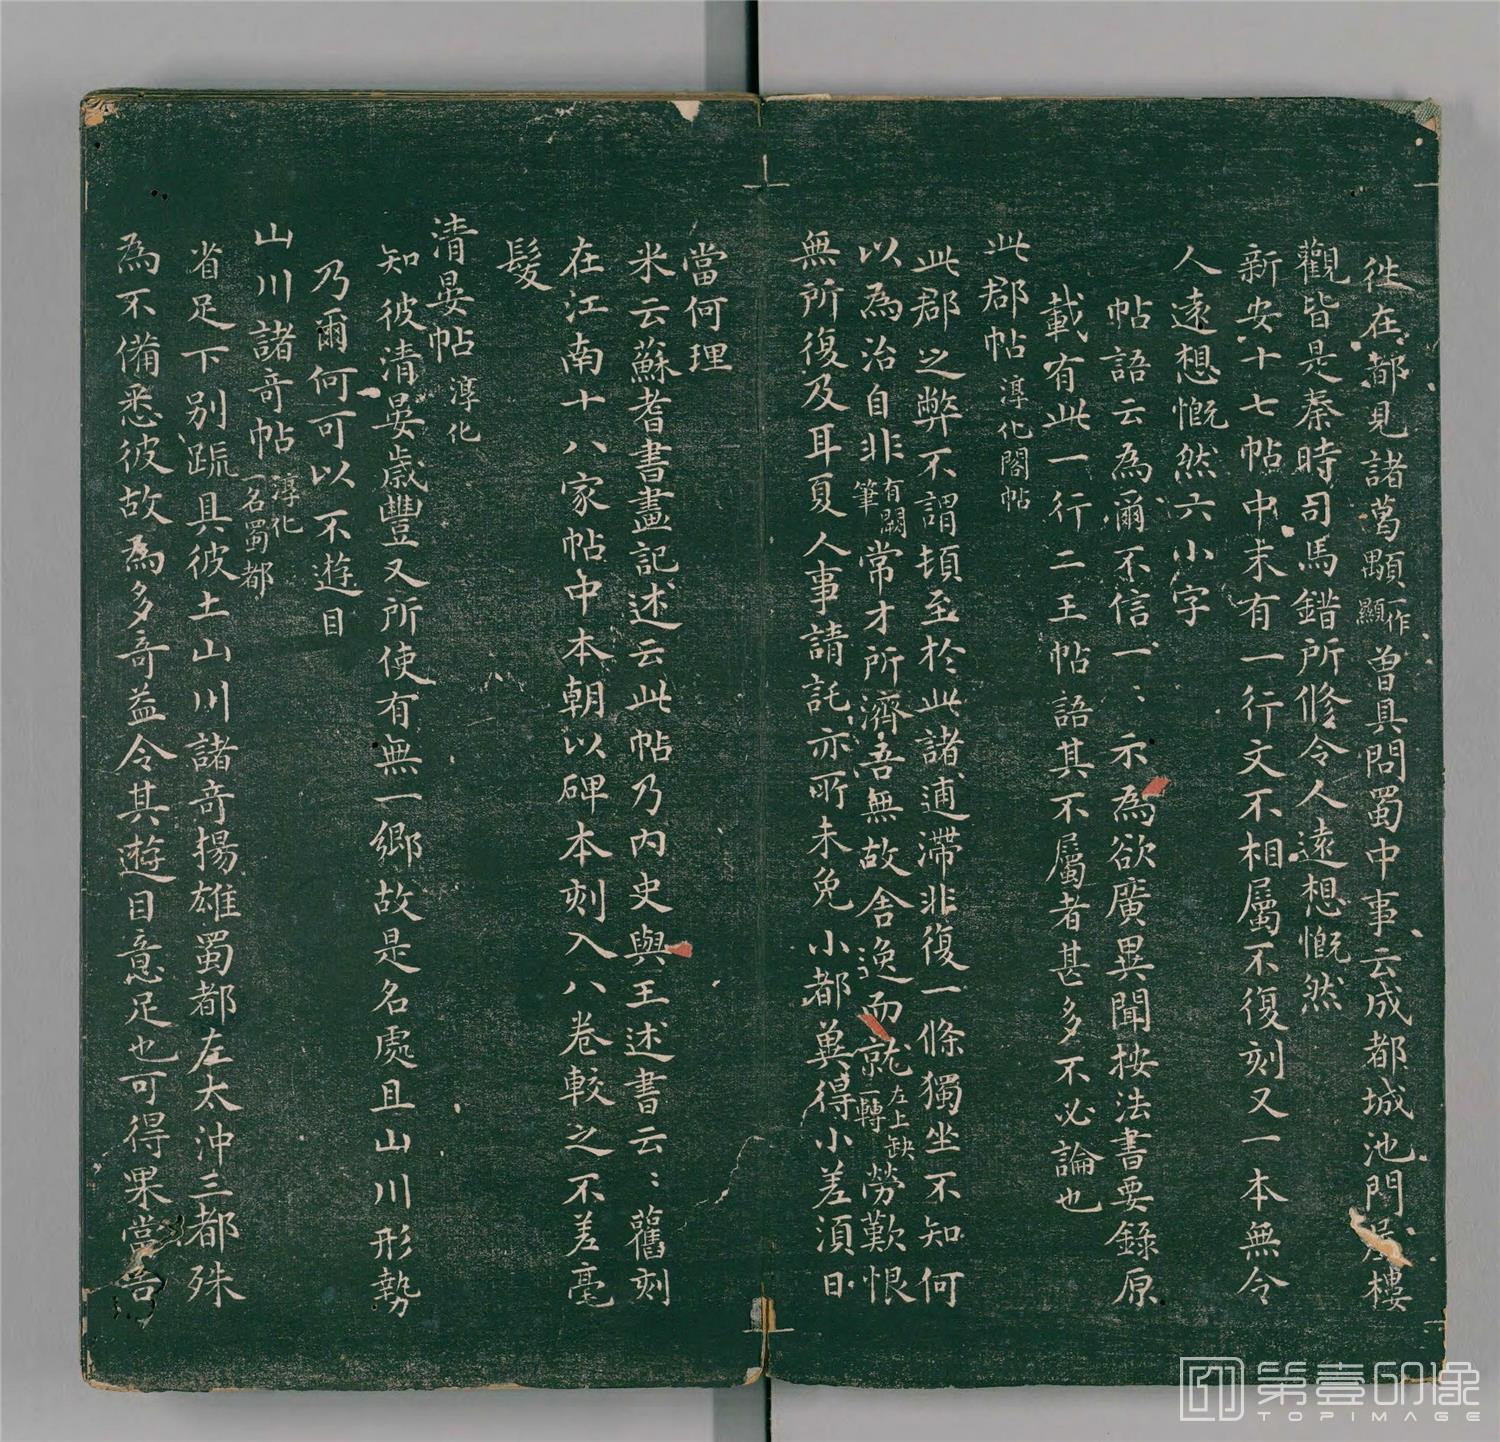 往在都見諸葛顒一作顯曾具問蜀中事云成都城池門屋樓
觀皆是秦時司馬錯所修令人遠想慨然
新安十七帖中未有一行文不相屬不復刻又一本無令
人遠想慨然六小字
帖語云為爾不信一〻示為欲廣異聞按法書要錄原
載有此一行二王帖語其不屬者甚多不必論也
此郡帖淳化閣帖
此郡之弊不謂頓至於此諸逋滯非復一條獨坐不知何
以為治自非有闕筆常才所濟吾無故舍逸而就左上缺一轉勞歎恨
無所復及耳夏人事請託亦所未免小都冀得小差須日
當何理
米云蘇耆書畫記述云此帖乃內史與王述書云〻舊刻
在江南十八家帖中本朝以碑本刻入八卷較之不差毫
髮
清晏帖淳化
知彼清晏歲豐又所使有無一鄉故是名處且山川形勢
乃爾何可以不遊目
山川諸奇帖淳化一名蜀都
省足下別疏具彼土山川諸奇揚雄蜀都左太沖三都殊
為不備悉彼故為多奇益令其遊目意足也可得果當告
第壹印像
TOPIMAGE